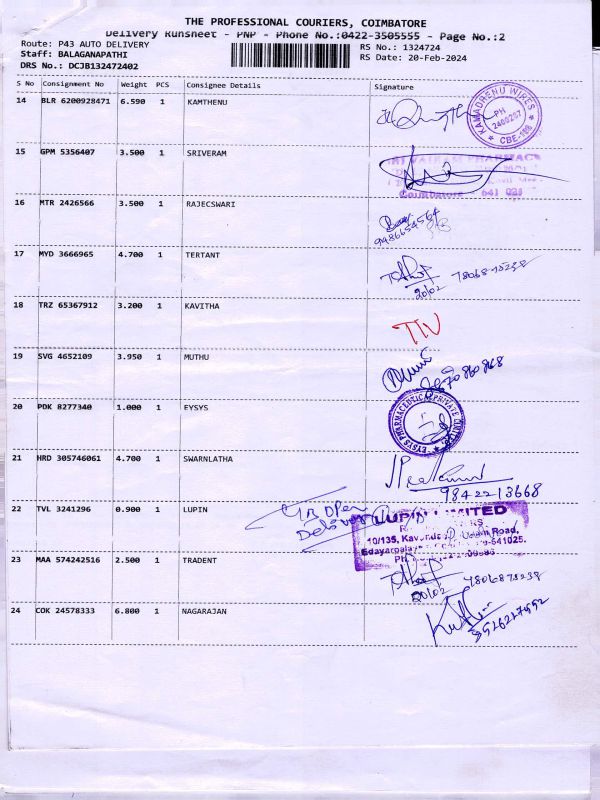 THE PROFESSIONAL COURIERS, COIMBATORE
Delivery Runsheet - PNP - Phone No.:0422-3505555 - Page No.:2
Route: P43 AUTO DELIVERY
Staff: BALAGANAPATHI
DRS No.: DCJB132472402
RS No.: 1324724
RS Date: 20-Feb-2024
S No Consignment No Weight PCS Consignee Details Signature
14 BLR 6200928471 6.590 1 KAMTHENU
KAMADHENU WIRES
PH
2400207
CBE-108
15 GPM 5356407 3.500 1 SRIVERAM
PHARMACY
COIMBATORE 641 028
16 MTR 2426566 3.500 1 RAJECSWARI
9986654564
17 MYD 3666965 4.700 1 TERTANT
20/02 78068 75238
18 TRZ 65367912 3.200 1 KAVITHA
TTV
19 SVG 4652109 3.950 1 MUTHU
20 PDK 8277340 1.000 1 EYSYS
EYSYS PHARMACEUTICAL PRIVATE LIMITED
21 HRD 305746061 4.700 1 SWARNLATHA
98422 13668
22 TVL 3241296 0.900 1 LUPIN
Open
Delivery
LUPIN LIMITED
10/135,
Road,
-641025.
23 MAA 574242516 2.500 1 TRADENT
20/02 7806875238
24 COK 24578333 6.800 1 NAGARAJAN